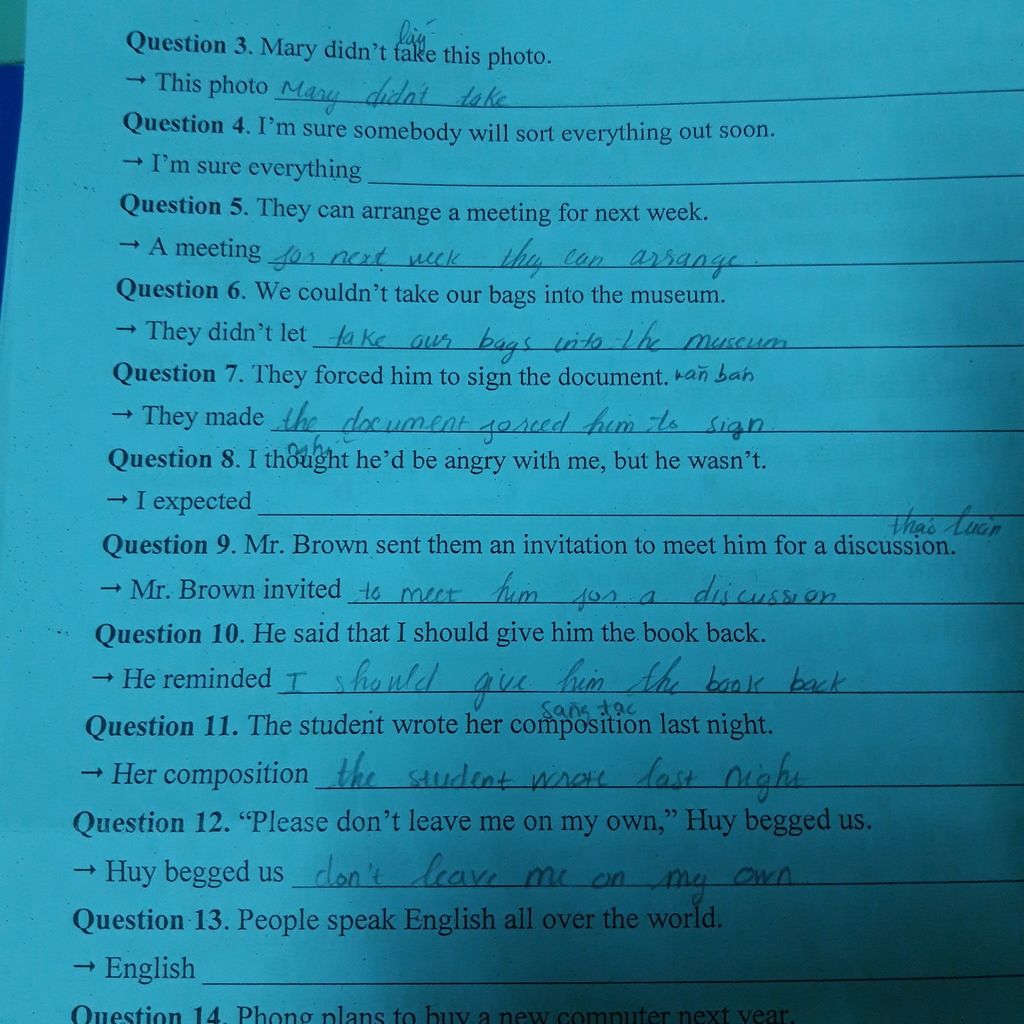 lấy
Question 3. Mary didn't take this photo.
→ This photo Mary didn't take
Question 4. I'm sure somebody will sort everything out soon.
→ I'm sure everything
Question 5. They can arrange a meeting for next week.
→ A meeting for next week they can arrange.
Question 6. We couldn't take our bags into the museum.
→ They didn't let take our bags into the museum
Question 7. They forced him to sign the document. văn bản
→ They made the document forced him to sign
nghĩ
Question 8. I thought he'd be angry with me, but he wasn't.
→ I expected
thảo luận
Question 9. Mr. Brown sent them an invitation to meet him for a discussion.
→ Mr. Brown invited to meet him for a discussion
Question 10. He said that I should give him the book back.
→ He reminded I should give him the book back
sáng tác
Question 11. The student wrote her composition last night.
→ Her composition the student wrote last night
Question 12. “Please don't leave me on my own,” Huy begged us.
→ Huy begged us don't leave me on my own
Question 13. People speak English all over the world.
→ English
Question 14. Phong plans to buy a new computer next year.